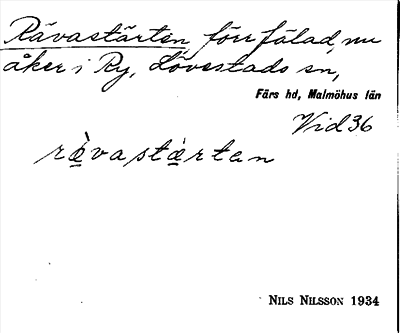 Rävastärten, förr fälad, nu
åker i Ry, Lövestads sn,
Färs hd, Malmöhus län
Vid 36
rävastärten
NILS NILSSON 1934